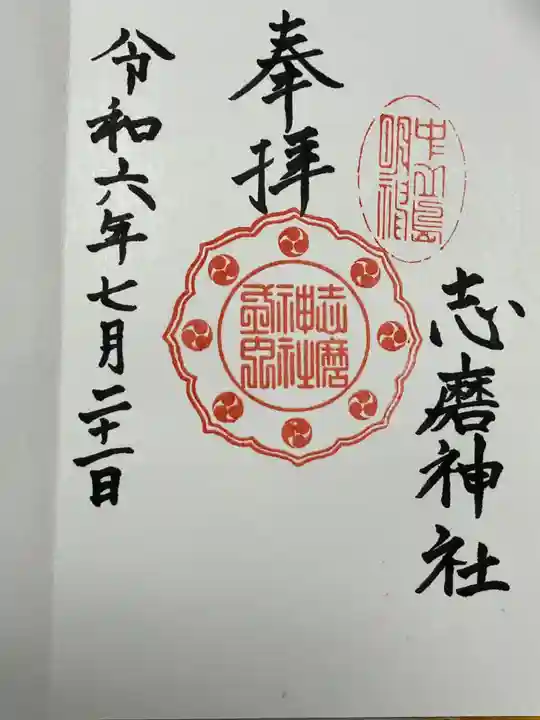 中之島
明神
志磨神社
奉拝
志磨
神社
令和六年七月二十一日